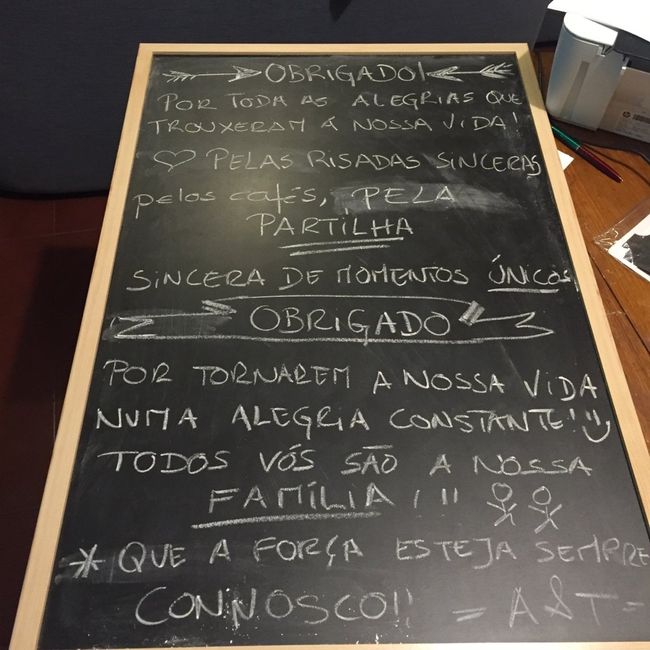 OBRIGADO!
POR TODA AS ALEGRIAS QUE
TROUXERAM Á NOSSA VIDA!
♡ PELAS RISADAS SINCERAS
pelos cafés, PELA
PARTILHA
SINCERA DE MOMENTOS ÚNICOS
OBRIGADO
POR TORNAREM A NOSSA VIDA
NUMA ALEGRIA CONSTANTE!! :)
TODOS VÓS SÃO A NOSSA
FAMÍLIA!!!
* QUE A FORÇA ESTEJA SEMPRE
CONNOSCO!! = A&T =
hp